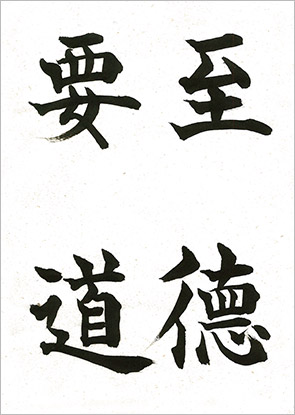 至德
要道